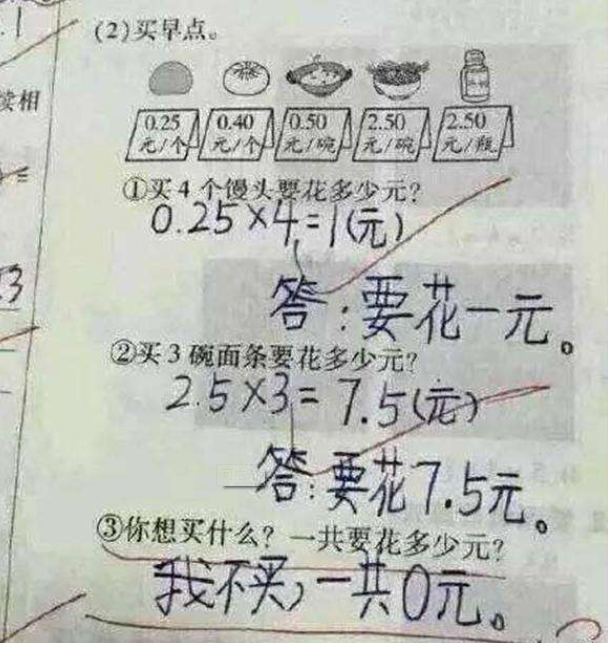 .1
(2)买早点。
续相
0.25 0.40 0.50 2.50 2.50
元/个 元/个 元/碗 元/碗 元/瓶
①买4个馒头要花多少元?
0.25×4=1(元)
答:要花一元。
②买3碗面条要花多少元?
2.5×3=7.5(元)
答:要花7.5元。
③你想买什么?一共要花多少元?
我不买,一共0元。